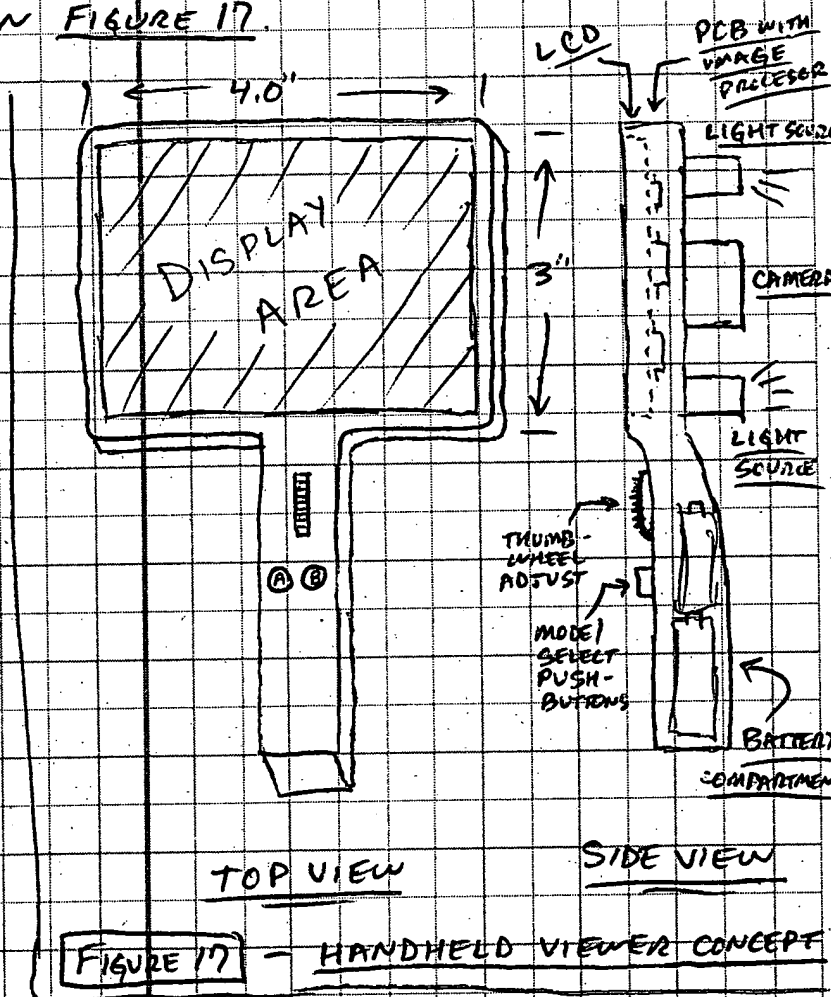 N FIGURE 17.
4.0"
LCD
PCB WITH
IMAGE
PROCESSOR
LIGHT SOURCE
DISPLAY
AREA
3"
CAMERA
LIGHT
SOURCE
THUMB-
WHEEL
ADJUST
A B
MODE/
SELECT
PUSH-
BUTTONS
BATTERY
COMPARTMEN
TOP VIEW
SIDE VIEW
FIGURE 17 - HANDHELD VIEWER CONCEPT